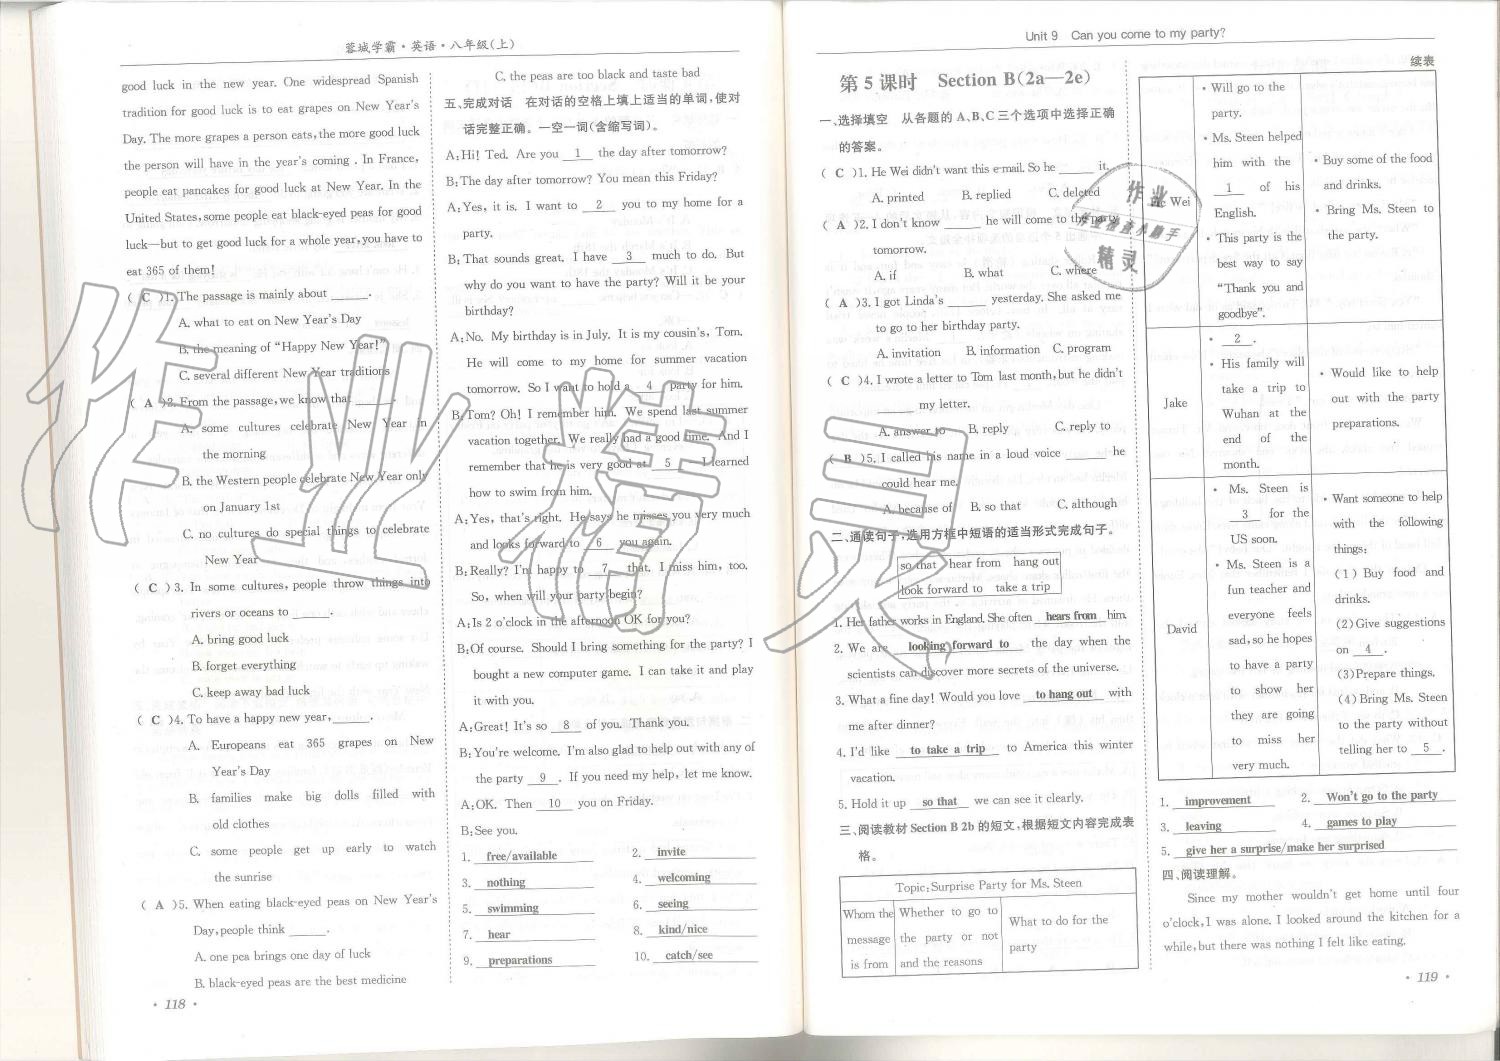 蓉城学霸·英语·八年级(上)
good luck in the new year. One widespread Spanish
tradition for good luck is to eat grapes on New Year's
Day. The more grapes a person eats, the more good luck
the person will have in the year's coming . In France,
people eat pancakes for good luck at New Year. In the
United States, some people eat black-eyed peas for good
luck—but to get good luck for a whole year, you have to
eat 365 of them!
( C )1. The passage is mainly about ______.
A. what to eat on New Year's Day
B. the meaning of "Happy New Year!"
C. several different New Year traditions
( A )2. From the passage, we know that ______.
A. some cultures celebrate New Year in
the morning
B. the Western people celebrate New Year only
on January 1st
C. no cultures do special things to celebrate
New Year
( C )3. In some cultures, people throw things into
rivers or oceans to ______.
A. bring good luck
B. forget everything
C. keep away bad luck
( C )4. To have a happy new year, ______.
A. Europeans eat 365 grapes on New
Year's Day
B. families make big dolls filled with
old clothes
C. some people get up early to watch
the sunrise
( A )5. When eating black-eyed peas on New Year's
Day, people think ______.
A. one pea brings one day of luck
B. black-eyed peas are the best medicine
· 118 ·
C. the peas are too black and taste bad
五、完成对话 在对话的空格上填上适当的单词,使对
话完整正确。一空一词(含缩写词)。
A: Hi! Ted. Are you 1 the day after tomorrow?
B: The day after tomorrow? You mean this Friday?
A: Yes, it is. I want to 2 you to my home for a
party.
B: That sounds great. I have 3 much to do. But
why do you want to have the party? Will it be your
birthday?
A: No. My birthday is in July. It is my cousin's, Tom.
He will come to my home for summer vacation
tomorrow. So I want to hold a 4 party for him.
B: Tom? Oh! I remember him. We spend last summer
vacation together. We really had a good time. And I
remember that he is very good at 5 . I learned
how to swim from him.
A: Yes, that's right. He says he misses you very much
and looks forward to 6 you again.
B: Really? I'm happy to 7 that. I miss him, too.
So, when will your party begin?
A: Is 2 o'clock in the afternoon OK for you?
B: Of course. Should I bring something for the party? I
bought a new computer game. I can take it and play
it with you.
A: Great! It's so 8 of you. Thank you.
B: You're welcome. I'm also glad to help out with any of
the party 9 . If you need my help, let me know.
A: OK. Then 10 you on Friday.
B: See you.
1. free/available 2. invite
3. nothing 4. welcoming
5. swimming 6. seeing
7. hear 8. kind/nice
9. preparations 10. catch/see
Unit 9 Can you come to my party?
第 5 课时 Section B(2a—2e)
一、选择填空 从各题的 A、B、C 三个选项中选择正确
的答案。
( C )1. He Wei didn't want this e-mail. So he ______ it.
A. printed B. replied C. deleted
( A )2. I don't know ______ he will come to the party
tomorrow.
A. if B. what C. where
( A )3. I got Linda's ______ yesterday. She asked me
to go to her birthday party.
A. invitation B. information C. program
( C )4. I wrote a letter to Tom last month, but he didn't
______ my letter.
A. answer to B. reply C. reply to
( B )5. I called his name in a loud voice ______ he
could hear me.
A. because of B. so that C. although
二、通读句子,选用方框中短语的适当形式完成句子。
so that hear from hang out
look forward to take a trip
1. Her father works in England. She often hears from him.
2. We are looking forward to the day when the
scientists can discover more secrets of the universe.
3. What a fine day! Would you love to hang out with
me after dinner?
4. I'd like to take a trip to America this winter
vacation.
5. Hold it up so that we can see it clearly.
三、阅读教材 Section B 2b 的短文,根据短文内容完成表
格。
Topic: Surprise Party for Ms. Steen
Whom the message is from
Whether to go to the party or not and the reasons
What to do for the party
续表
He Wei
· Will go to the
party.
· Ms. Steen helped
him with the
1 of his
English.
· This party is the
best way to say
"Thank you and
goodbye".
· Buy some of the food
and drinks.
· Bring Ms. Steen to
the party.
Jake
· 2 .
· His family will
take a trip to
Wuhan at the
end of the
month.
· Would like to help
out with the party
preparations.
David
· Ms. Steen is
3 for the
US soon.
· Ms. Steen is a
fun teacher and
everyone feels
sad, so he hopes
to have a party
to show her
they are going
to miss her
very much.
· Want someone to help
with the following
things:
(1) Buy food and
drinks.
(2) Give suggestions
on 4 .
(3) Prepare things.
(4) Bring Ms. Steen
to the party without
telling her to 5 .
1. improvement 2. Won't go to the party
3. leaving 4. games to play
5. give her a surprise/make her surprised
四、阅读理解。
Since my mother wouldn't get home until four
o'clock, I was alone. I looked around the kitchen for a
while, but there was nothing I felt like eating.
· 119 ·
作业精灵
作业
作业检查小助手
精灵